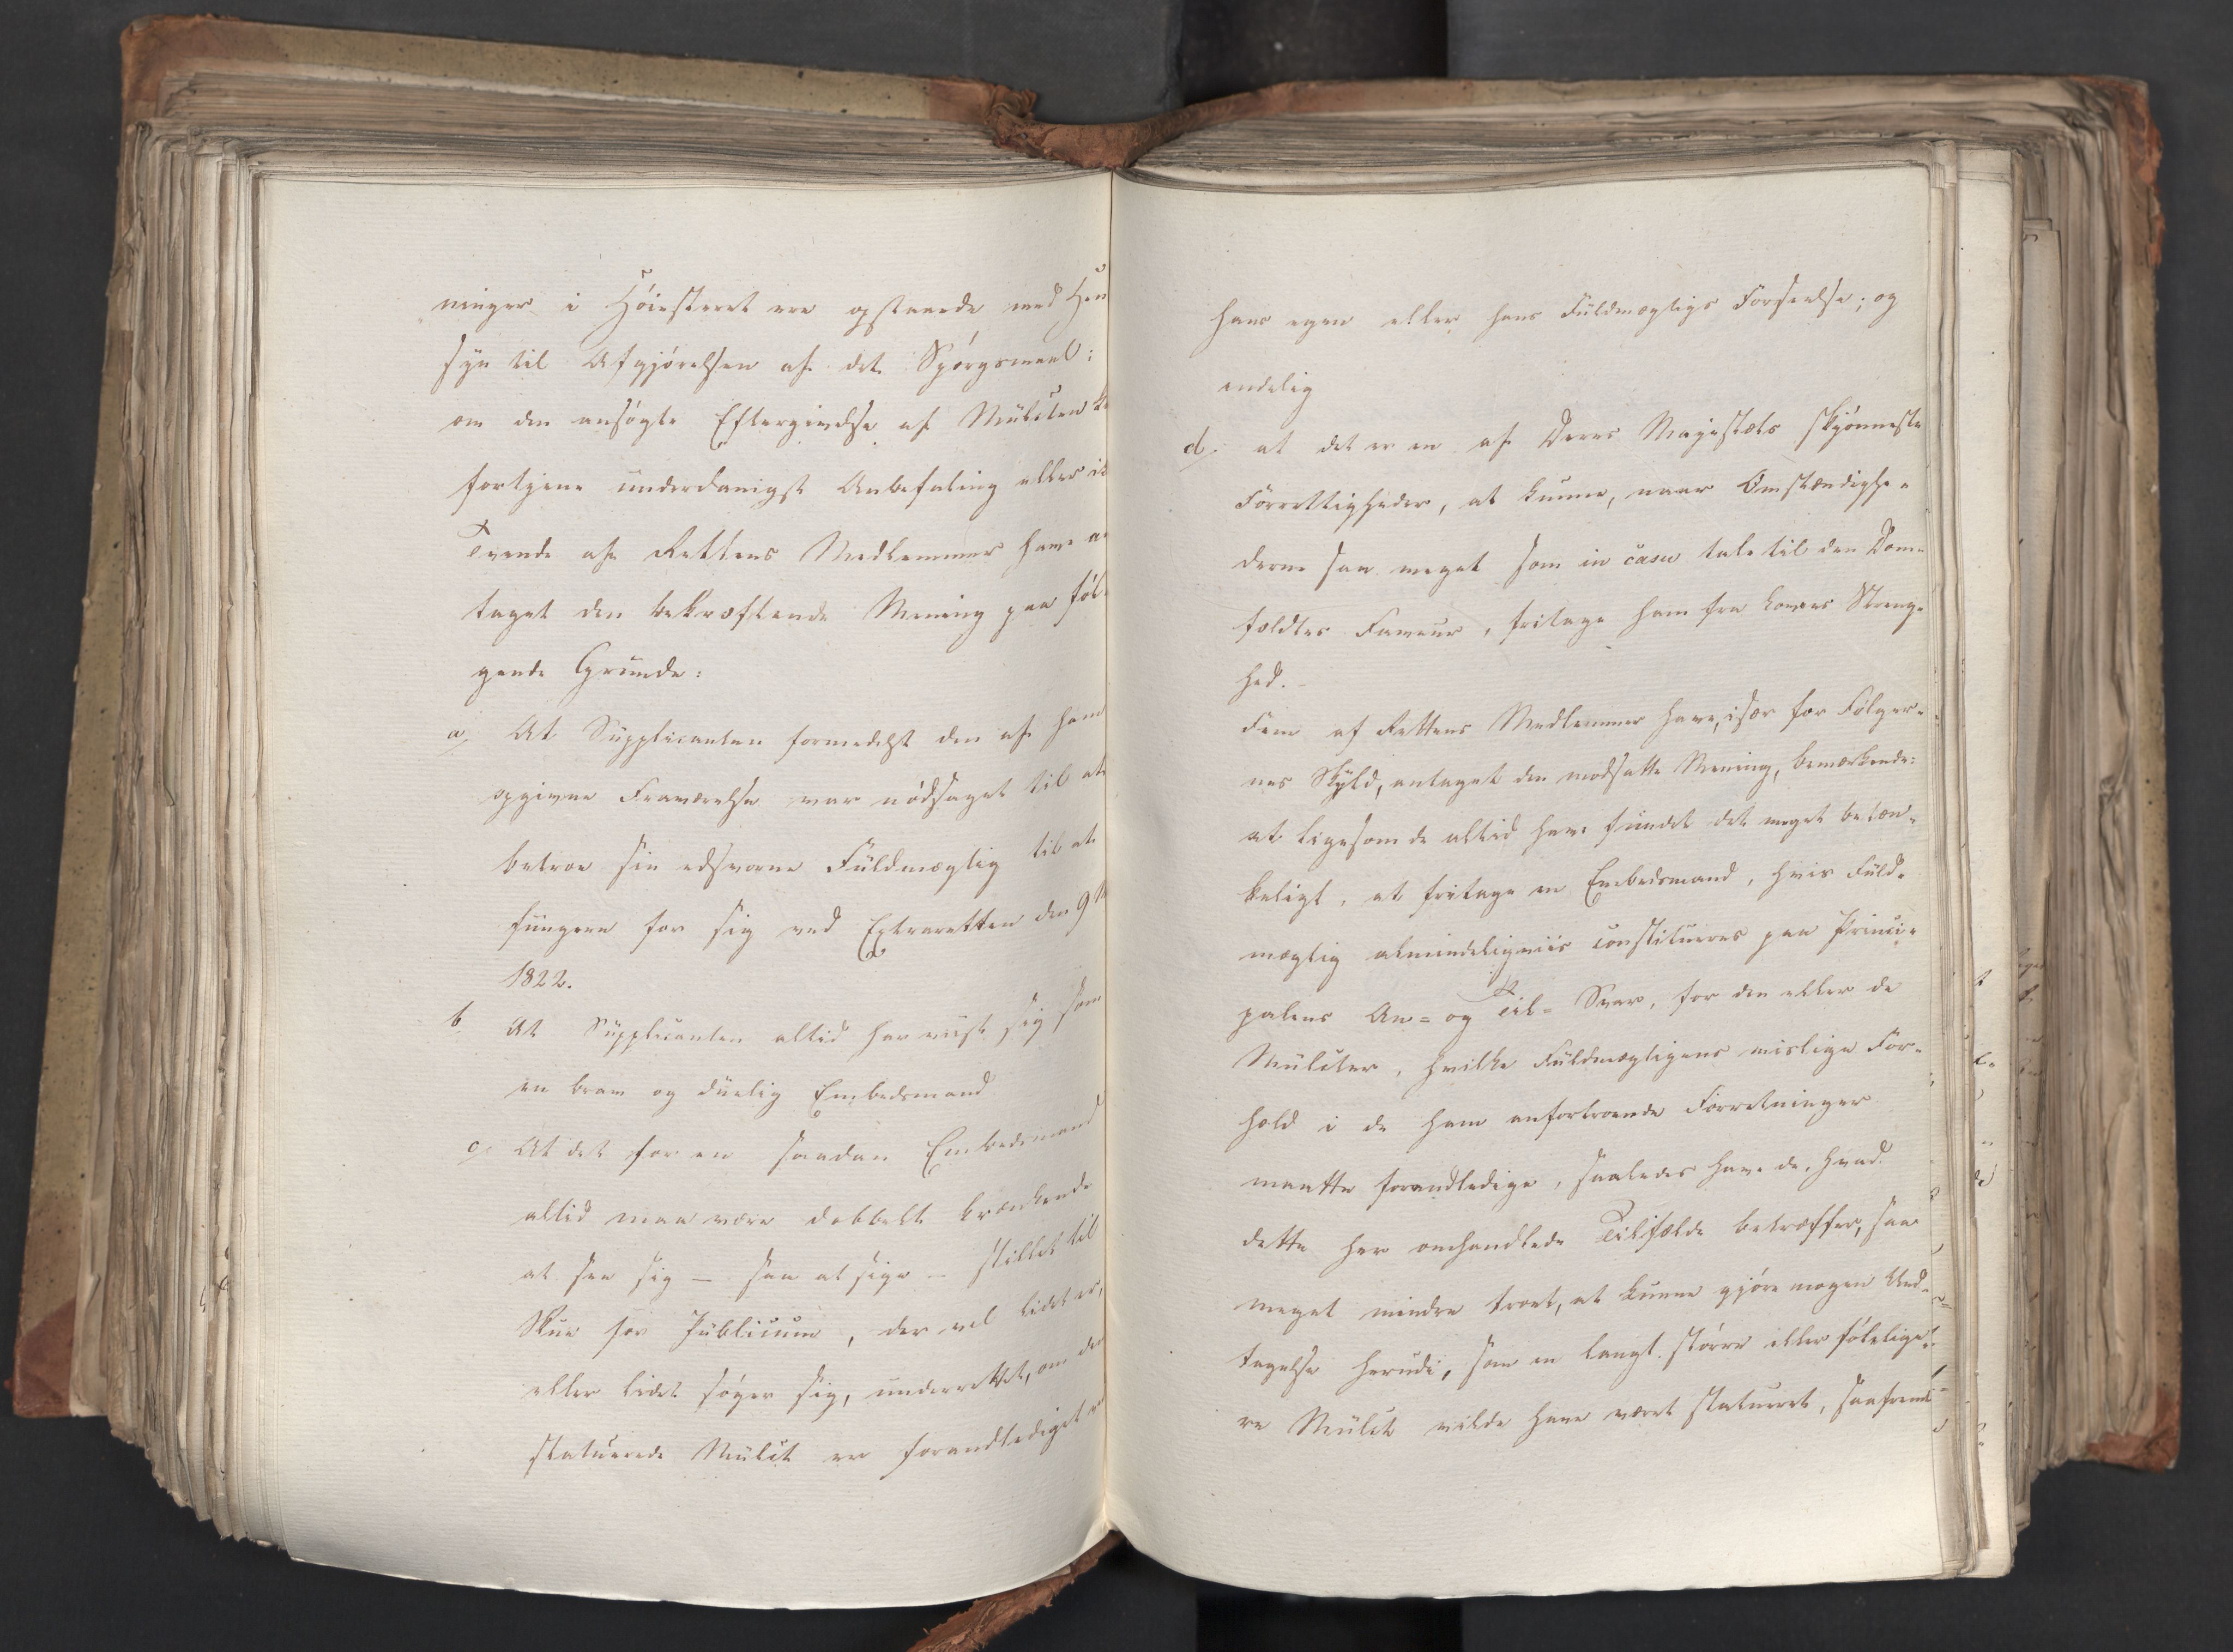 ninger i Höiesteret ere opstaaede med Hen
syn til Afgjörelsen af det Spörgsmaal:
om den ansögte Eftergivelse af Mulcten
fortjene underdanigst Anbefaling eller
Tvende af Rettens Medlemmer have
taget den bekræftende Mening paa föl
gende Grunde:
a, At Supplicanten formedelst den af ham
opgivne Fraværelse var nödsaget til at
betroe sin edsvorne Fuldmægtig til at
fungere for sig ved Extraretten den 9
1822.
b. At Supplicanten altid har viist sig som
en brav og duelig Embedsmand
c, At det for en saadan Embedsmand
altid maa være dobbelt krænkende
at see sig – saa at sige – stillet til
Skue for Publicum, der vel lidet er,
eller lidet söger sig, underrettet, om den
statuerede Mulct er foranlediget
hans egen eller hans Fuldmægtigs Forseelse; og
endelig
d, at det er en af Deres Majestæts skjönneste
Forrettigheder, at kunne, naar Omstændighe-
derne saa meget som in casu tale til den Dom-
fældtes Faveur, fritage ham fra Lovens Streng-
hed. –
Fem af Rettens Medlemmer have, især for Fölger-
nes Skyld, antaget den modsatte Mening, bemærkende:
at ligesom de altid have fundet det meget betæn-
keligt, at fritage en Embedsmand, hvis Fuld-
mægtig almindeligviis constitueres paa Princi-
palens An- og Til- Svar, for den eller de
Mulcter, hvilke Fuldmægtigens mislige For-
hold i de ham anfortroede Forretninger
maatte foranledige, saaledes have de, hvad
dette her omhandlede Tilfælde betræffer, saa
meget mindre troet, at kunne gjöre nogen Und-
tagelse herudi, som en langt större eller föleligst-
re Mulct vilde have været statueret, saafremt